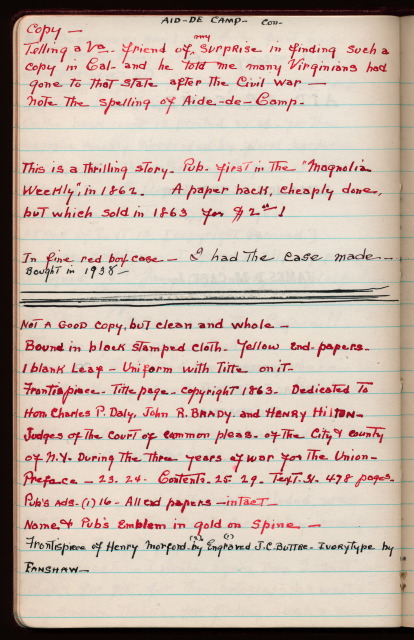 AID-DE CAMP- Con-
Copy —
my
Telling a Va. friend of, surprise in finding such a
copy in Cal- and he told me many Virginians had
gone to that State after the Civil War —
Note the spelling of Aide-de-Camp.
This is a thrilling story. Pub. first in the "Magnolia
Weekly", in 1862. A paper back, cheaply done,
but which sold in 1863 for $2.00!
In fine red box case — I had the case made —
Bought in 1938 —
Not a Good Copy, but clean and whole —
Bound in black stamped cloth. Yellow end-papers.
1 blank Leaf - Uniform with Title on it-
Frontispiece. Title page. Copyright 1863. Dedicated To
Hon Charles P. Daly, John R. Brady. and Henry Hilton—
Judges of the Court of Common pleas. of the City & County
of N.Y. During the three years of war for the Union—
Preface — 23. 24. Contents. 25 29. Text. 31. 478 pages.
Pub's Ads. (1) 16 - All end papers — intact —
Name & Pub's Emblem in gold on Spine —
Frontispiece of Henry Morford. by (?) Engraved J.C. Buttre. Ivorytype by
Fanshaw—